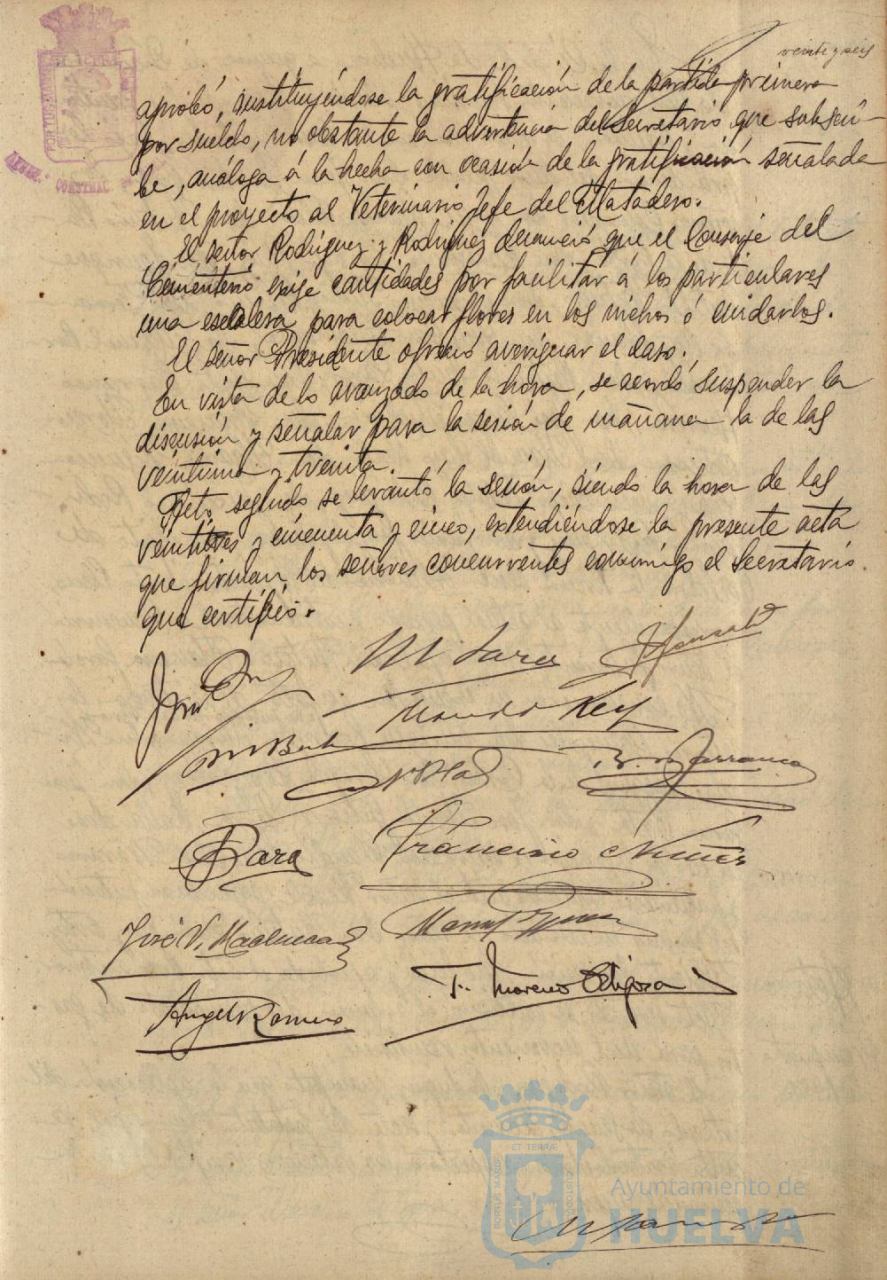 veinte y seis
aprobó, sustituyéndose la gratificación de la partida primera
por sueldo, no obstante la advertencia del Secretario que subscri-
be, análoga á la hecha con ocasión de la gratificación señalada
en el proyecto al Veterinario Jefe del Matadero.
El señor Rodríguez y Rodríguez denunció que el Conserje del
Cementerio exige cantidades por facilitar á los particulares
una escalera para colocar flores en los nichos ó cuidarlos.
El señor Presidente ofreció averiguar el caso.
En vista de lo avanzado de la hora, se acordó suspender la
discusión y señalar para la sesión de mañana la de las
veintiuna y treinta.
Acto seguido se levantó la sesión, siendo la hora de las
veintitres y cincuenta y cinco, extendiéndose la presente acta
que firman los señores concurrentes conmigo el Secretario
que certifico.
Francisco Núñez
José V.
Angel Romero
F. Moreno
ET TERRÆ
Ayuntamiento de
HUELVA